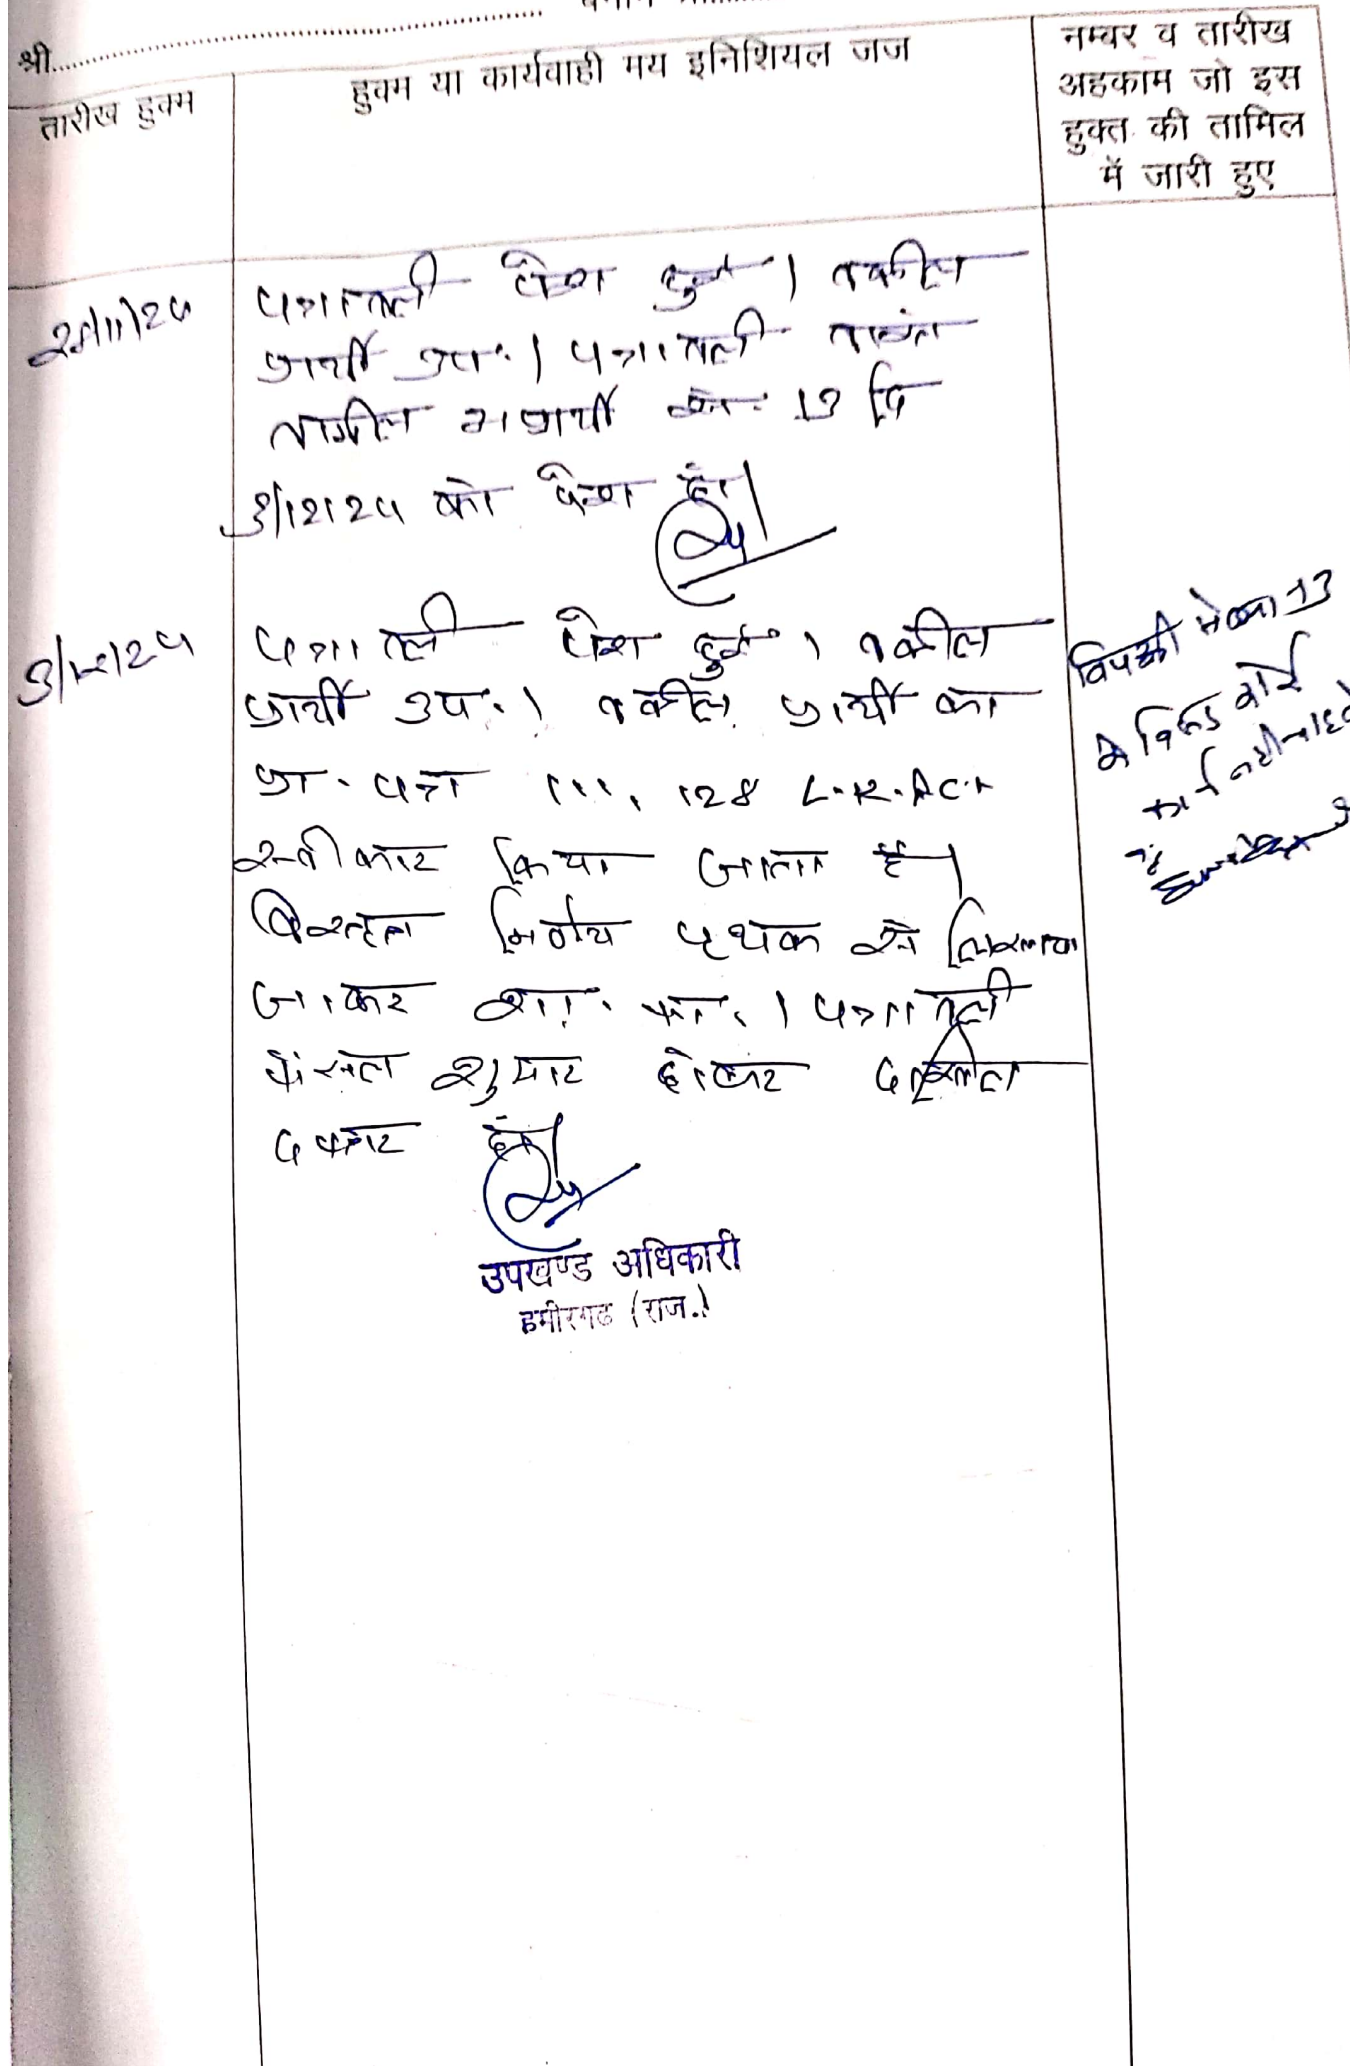 श्री
तारीख हुक्म
हुक्म या कार्यवाही मय इनिशियल जज
नम्बर व तारीख
अहकाम जो इस
हुक्त की तामिल
में जारी हुए
पत्रावली पेश हुई। वकील
प्रार्थी उप.। पत्रावली वास्ते
तामील अप्रार्थी सं. 13 दि
3/12/24 को पेश हो।
3/12/24
पत्रावली पेश हुई। वकील
प्रार्थी उप.। वकील प्रार्थी का
प्रा. पत्र 111, 128 L.R.Act
स्वीकार किया जाता है।
विस्तृत निर्णय पृथक से लिखाया
जाकर शा. फा.। पत्रावली
फैसल शुमार होकर दाखिल
दफ्तर हो।
विपक्षी संख्या 13
के विरुद्ध कोई
उपखण्ड अधिकारी
हमीरगढ (राज.)